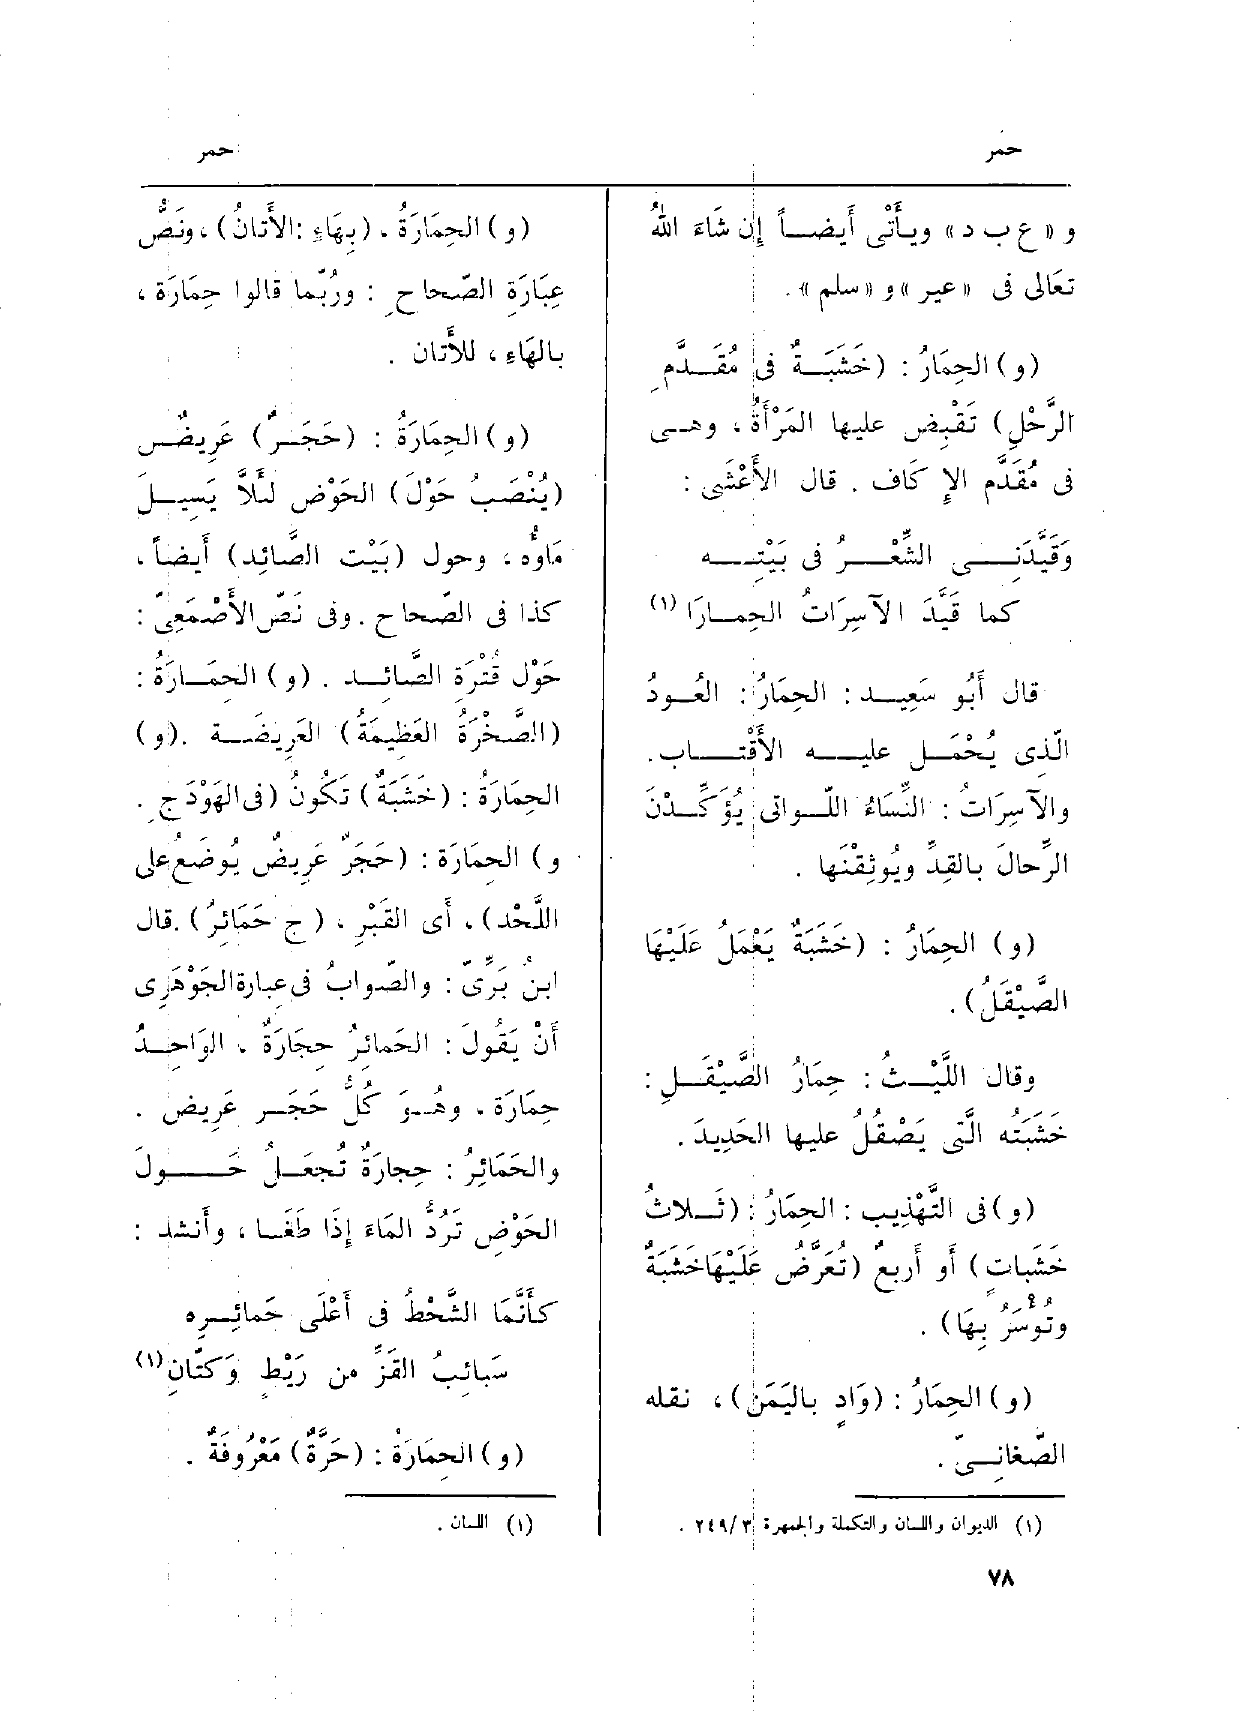 حمر
حمر
و «ع ب د» ويأْتى أيضاً إن شَاءَ اللهُ
تعَالى فى «عير» و «سلم».
(و) الحِمَارُ : (خَشَبَةٌ فى مُقَدَّمِ
الرَّحْلِ) تَقْبِض عليها المَرْأَةُ ، وهى
فى مُقَدَّم الإِكَاف . قال الأَعْشَى :
وَقَيَّدَنِى الشِّعْرُ فى بَيْتِه
كما قَيَّدَ الآسِرَاتُ الحِمارَا (١)
قال أَبُو سَعِيد : الحِمَارُ : العُودُ
الّذى يُحْمَل عليه الأَقْتاب.
والآسِرَاتُ : النِّسَاءُ اللّواتى يُؤَكِّدْنَ
الرِّحالَ بالقِدِّ ويُوثِقْنَها .
(و) الحِمَارُ : (خَشَبَةٌ يَعْمَلُ عَلَيْهَا
الصَّيْقَلُ).
وقال اللَّيْثُ : حِمَارُ الصَّيْقَلِ :
خَشَبَتُه الَّتى يَصْقُلُ عليها الحَدِيدَ .
(و) فى التَّهْذِيب : الحِمَارُ : (ثَلاثُ
خَشَبَاتٍ) أَو أَربعٌ (تُعَرَّض عَلَيْهَا خَشَبَةٌ
وتُؤْسَرُ بِهَا) .
(و) الحِمَارُ : (وَادٍ باليَمَنِ) ، نقله
الصّغانِىّ .
(١) الديوان واللسان والتكملة والجمهرة ٢٤٩/٣ .
(و) الحِمَارَةُ ، (بِهَاءٍ : الأَتانُ) ، ونَصُّ
عِبَارَةِ الصّحاحِ : ورُبّما قالوا حِمَارَة ،
بالهَاءِ ، للأَتان .
(و) الحِمَارَةُ : (حَجَرٌ) عَرِيضٌ
(يُنْصَبُ حَوْلَ) الحَوْض لئَلاَّ يَسِيلَ
مَاؤُه ، وحول (بَيْت الصَّائِد) أَيضاً ،
كذا فى الصّحاح . وفى نَصّ الأَصْمَعِىّ :
حَوْل قُتْرَةِ الصَّائِد . (و) الحِمَارَةُ :
(الصَّخْرَةُ العَظِيمَةُ) العَرِيضَة . (و)
الحِمَارَةُ : (خَشَبَةٌ) تَكُونُ (فى الهَوْدَجِ .
و) الحِمَارَة : (حَجَرٌ عَرِيضٌ يُوضَع على
اللَّحْد) ، أَى القَبْرِ ، (ج حَمَائِرُ) . قال
ابنُ بَرِّىّ : والصّوابُ فى عِبارة الجَوْهَرِى
أَنْ يَقُولَ : الحَمائِرُ حِجَارَةٌ ، الوَاحِدُ
حِمَارَة ، وهُوَ كُلُّ حَجَرٍ عَرِيض .
والحَمَائِرُ : حِجارَةٌ تُجعَلُ حَولَ
الحَوْضِ تَرُدُّ المَاءَ إِذَا طَغَا ، وأَنشد :
كَأَنَّمَا الشَّحْطُ فى أَعْلَى حَمائِرِه
سَبائِبُ القَزِّ من رَيْطٍ وَكتّانِ (١)
(و) الحِمَارَة : (حَرَّةٌ) مَعْرُوفَةٌ .
(١) اللسان .
٧٨